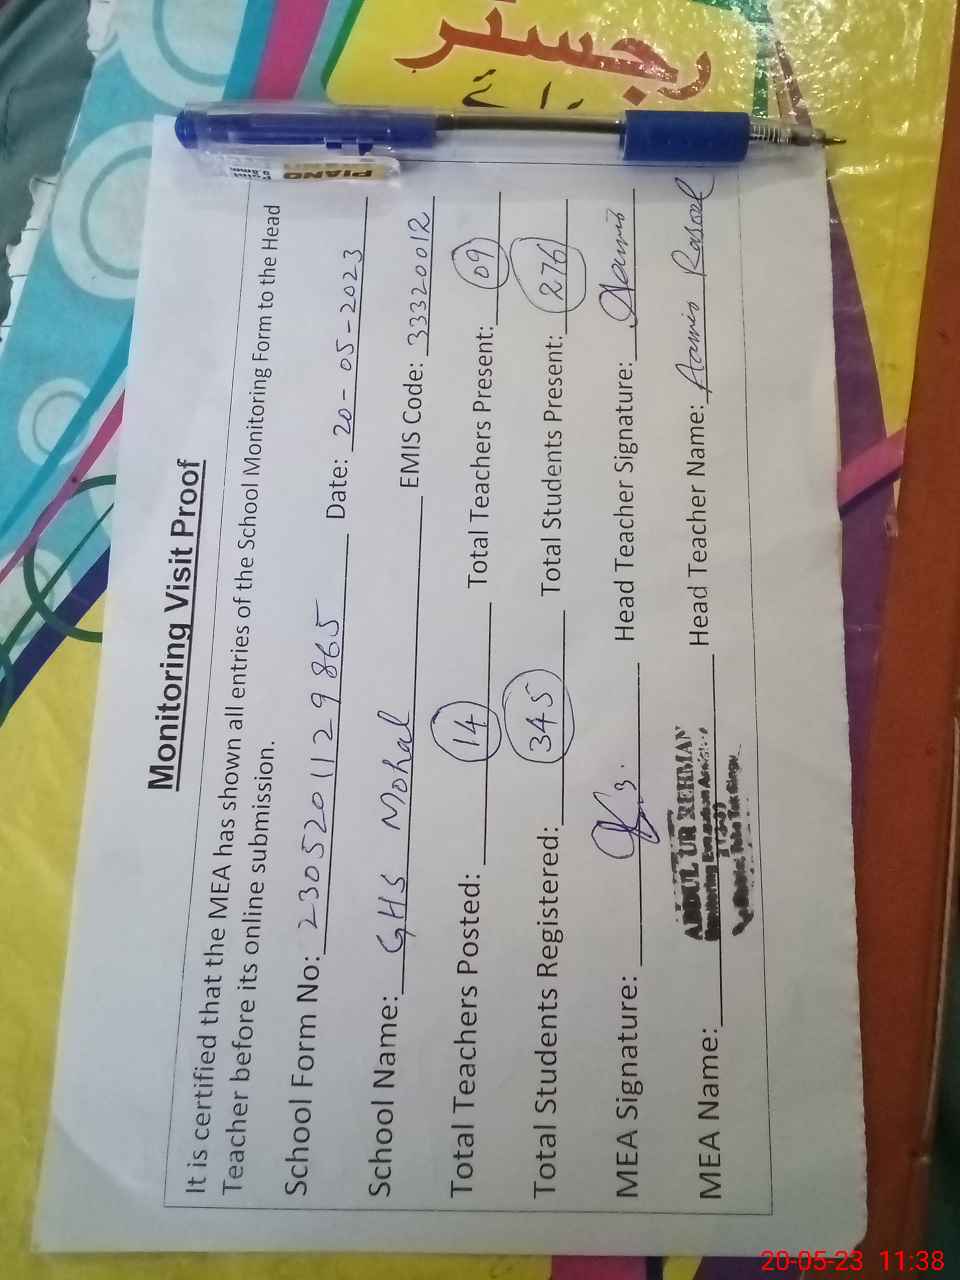 رجسٹر
PIANO
Point
0.8mm
Monitoring Visit Proof
It is certified that the MEA has shown all entries of the School Monitoring Form to the Head
Teacher before its online submission.
School Form No: 230520112 9865 Date: 20-05-2023
School Name: GHS Mohal EMIS Code: 33320012
Total Teachers Posted: 14 Total Teachers Present: 09
Total Students Registered: 345 Total Students Present: 276
MEA Signature: Head Teacher Signature: Aamir
MEA Name: ABDUL UR REHMAN Head Teacher Name: Aamir Rasool
Monitoring Evaluation Assistant
Toba Tek Singh
20-05-23 11:38